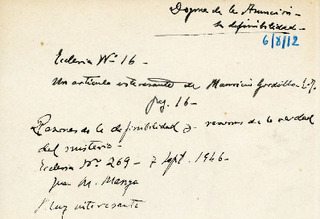 Dogma de la Asunción -
su definibilidad -
6/8/12
Ecclesia Nº 16 -
Un artículo interesante de Mauricio Gordillo - S.J.
pag. 16 -
Razones de la definibilidad y razones de la verdad
del misterio -
Ecclesia Nº 269 - 7 Sept. 1946 -
Juan M.
Muy interesante